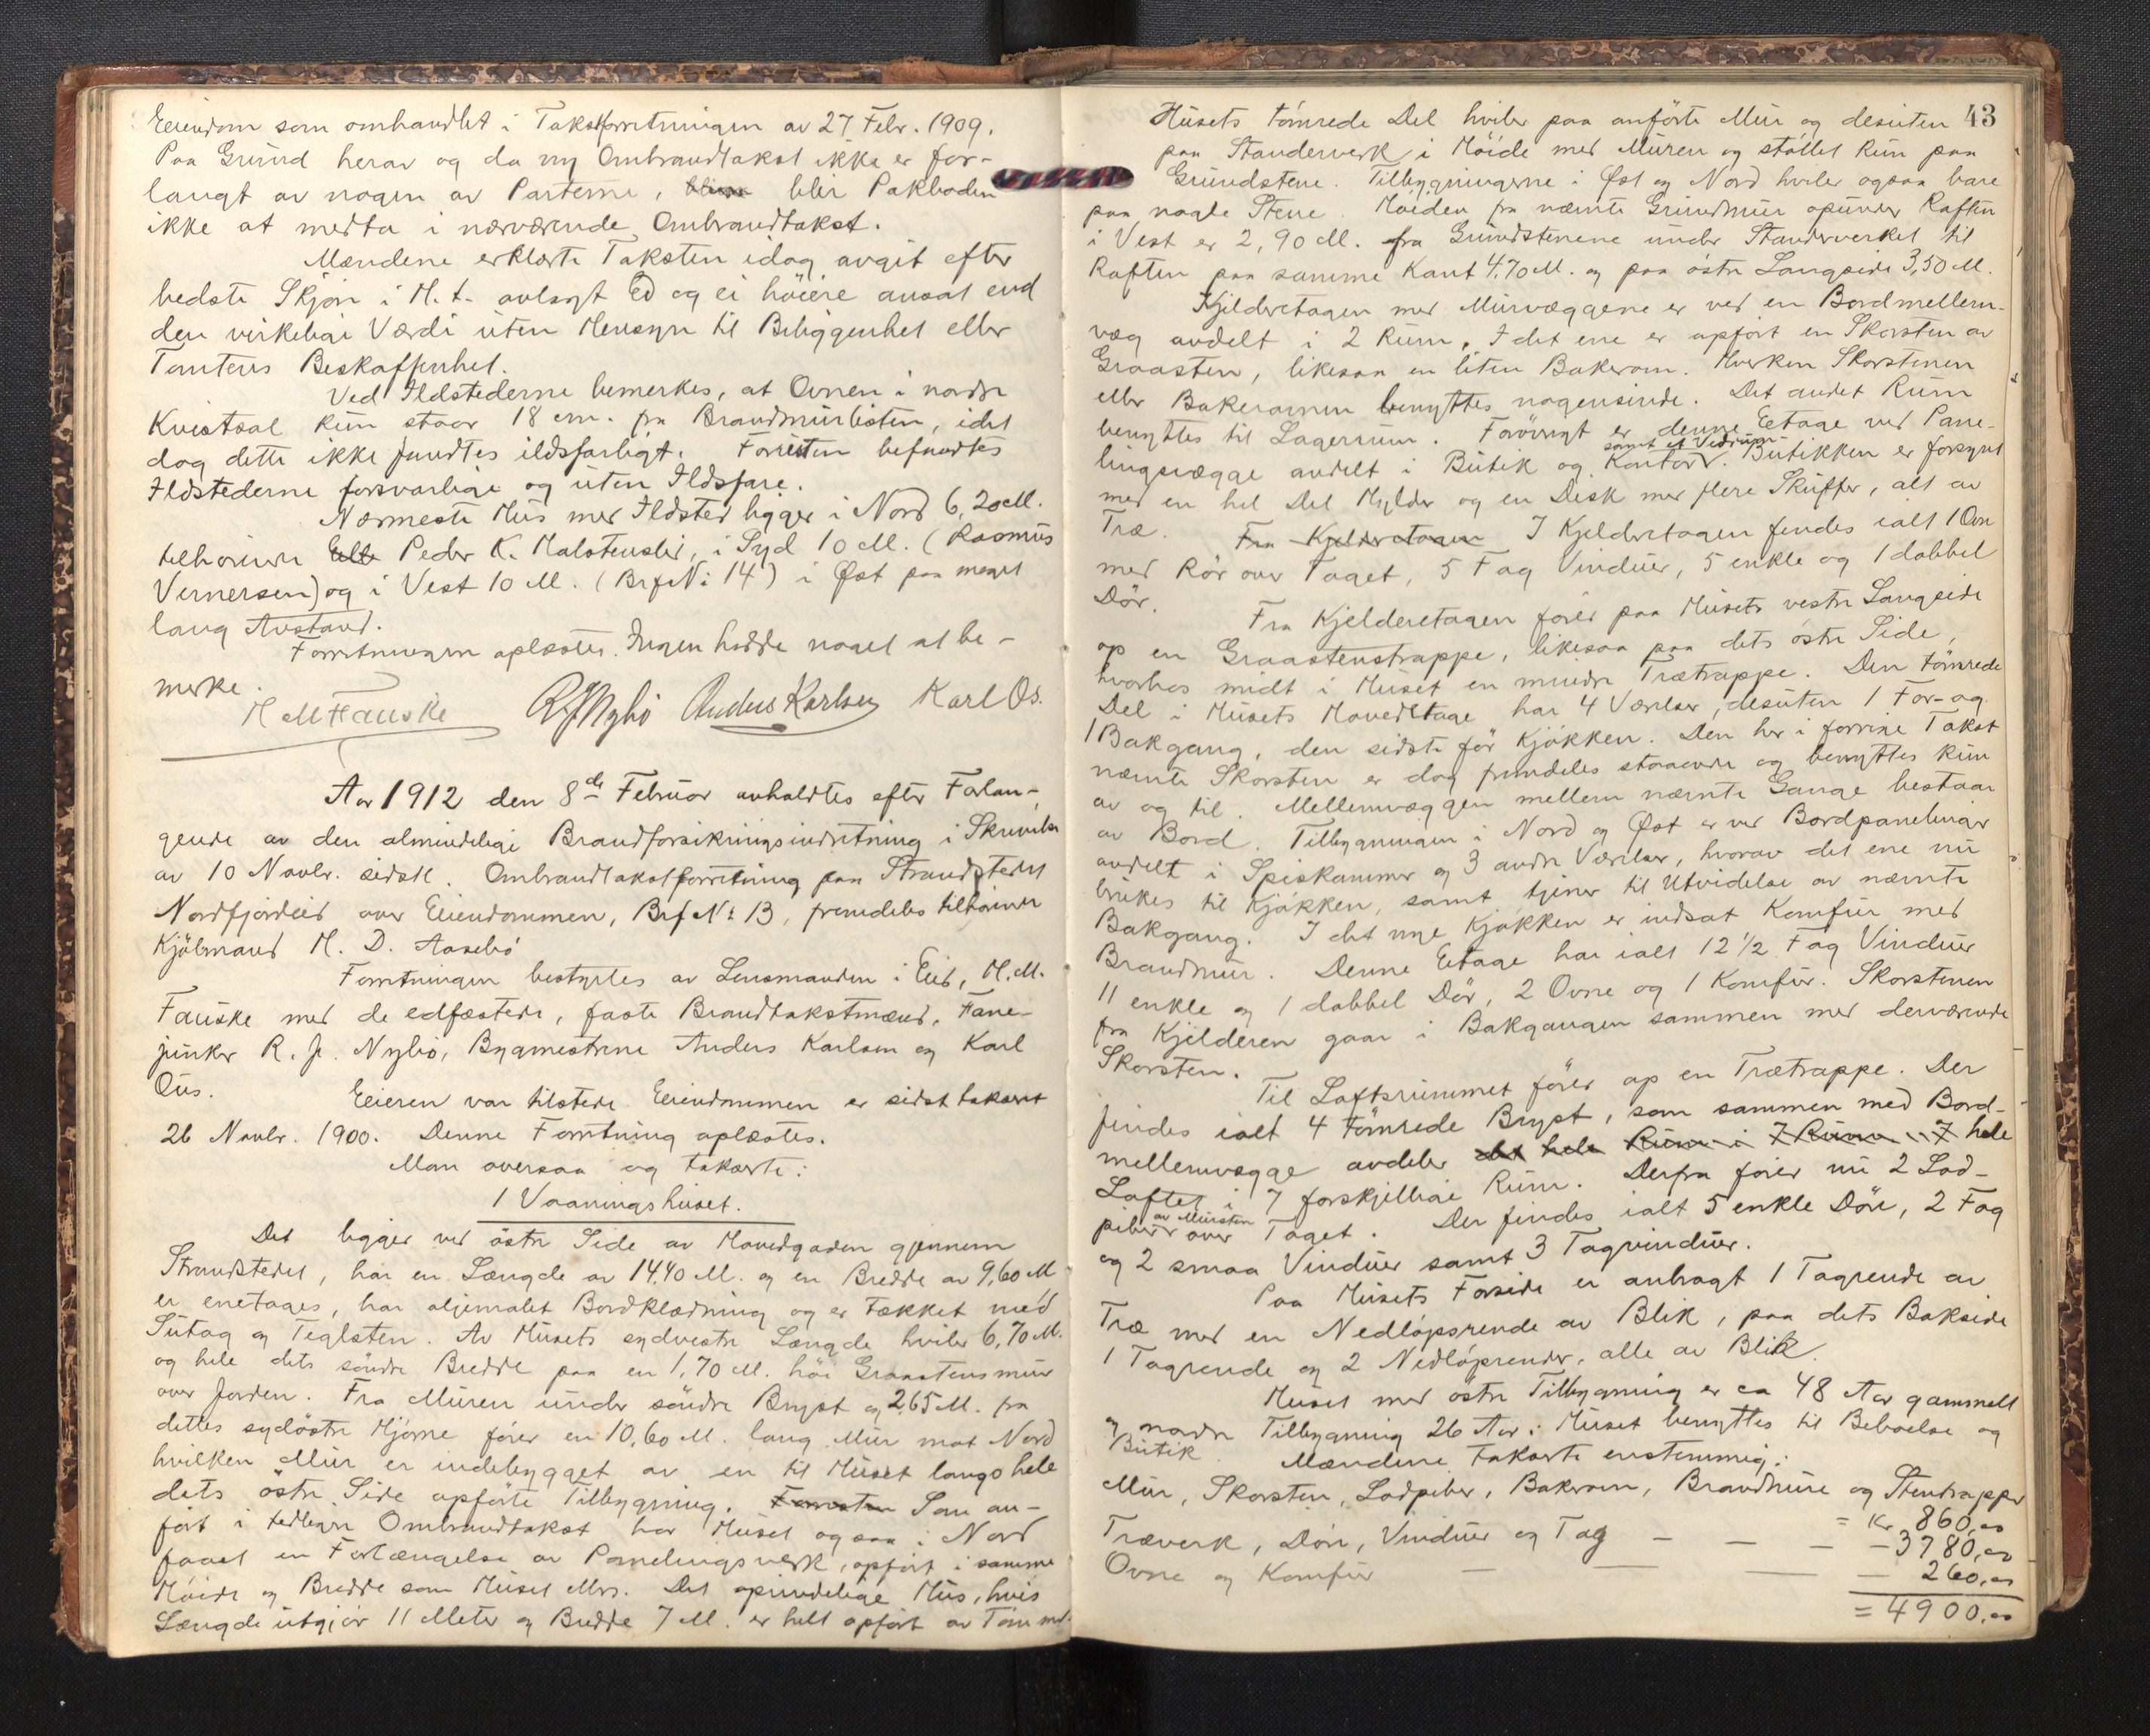 Eiendom som omhandlet i Takstforretningen av 27 Febr. 1909.
Paa Grund herav og da ny Ombrandtakst ikke er for-
langt av nogen av Parterne, blir Pakboden
ikke at medta i nærværende Ombrandtakst.
Mændene erklærte Taksten idag avgit efter
bedste Skjøn i H. t. avlagt Ed og ei høiere ansat end
den virkelige Værdi uten Hensyn til Beliggenhet eller
Tomtens Beskaffenhet.
Ved Ildstederne bemerkes, at Ovnen i nordre
Kvistsal kun staar 18 cm. fra Brandmurlisten, idet
dog dette ikke fandtes ildsfarligt. Forresten befandtes
Ildstederne forsvarlige og uten Ildsfare.
Nærmeste Hus med Ildsted ligger i Nord 6,20 M.
tilhørende Peder K. , i Syd 10 M. (Rasmus
Vernersen) og i Vest 10 M. (Brf No 14) i Øst paa meget
lang Avstand.
Forretningen oplæstes. Ingen hadde noget at be-
merke.
H M Fauske R J Nybø Anders Karlsen Karl Os.
Aar 1912 den 8de Februar avholdtes efter Forlan-
gende av den almindelige Brandforsikringsindretning i Skrivelse
av 10 Novbr. sidstl. Ombrandtakstforretning paa Strandstedet
Nordfjordeid over Eiendommen, Brf No 13, fremdeles tilhørende
Kjøbmand H. D. Aasebø
Forretningen bestyrtes av Lensmanden i Eid, H. M.
Fauske med de edfæstede, faste Brandtakstmænd, Fane-
junker R. J. Nybø, Bygmestrene Anders Karlsen og Karl
Os.
Eieren var tilstede. Eiendommen er sidst takseret
26 Novbr. 1900. Denne Forretning oplæstes.
Man oversaa og takserte:
1 Vaaningshuset.
Det ligger ved østre Side av Hovedgaden gjennem
Strandstedet, har en Længde av 14,40 M. og en Bredde av 9,60 M
er enetages, har oljemalet Bordklædning og er tækket med
Sutag og Teglsten. Av Husets sydvestre Længde hviler 6,70 M.
og hele dets søndre Bredde paa en 1,70 M. høi Graastensmur
over Jorden. Fra Muren under søndre Bryst og 2,65 M. fra
dettes sydøstre Hjørne fører en 10,60 M. lang Mur mot Nord
hvilken Mur er indebygget av en til Huset langs hele
dets østre Side opførte Tilbygning. Som an-
ført i tidligere Ombrandtakst har Huset ogsaa i Nord
faaet en Forlængelse av Panelingsverk, opført i samme
Høide og Bredde som Huset ellers. Det oprindelige Hus, hvis
Længde utgjør 11 Meter og Bredde 7 M. er helt opført av Tømmer
43
Husets tømrede Del hviler paa anførte Mur og desuten
paa Standerverk i Høide med Muren og støttet kun paa
Grundstene. Tilbygningerne i Øst og Nord hviler ogsaa bare
paa nogle Stene. Høiden fra nævnte Grundmur opunder Raften
i Vest er 2,90 M. fra Grundstenene under Standerverket til
Raften paa samme Kant 4,70 M. og paa østre Langside 3,50 M.
Kjelderetagen med Murvæggene er ved en Bordmellem-
væg avdelt i 2 Rum. I det ene er opført en Skorsten av
Graasten, likesaa en liten Bakerovn. Hverken Skorstenen
eller Bakerovnen benyttes nogensinde. Det andet Rum
benyttes til Lagerrum. Forøvrigt er denne Etage ved Pane-
lingsvægge avdelt i Butik og Kontor samt et Vedrum. Butikken er forsynt
med en hel Del Hylder og en Disk med flere Skuffer, alt av
Træ. Fra Kjelderetagen I Kjelderetagen findes ialt 1 Ovn
med Rør over Taget, 5 Fag Vinduer, 5 enkle og 1 dobbel
Dør.
Fra Kjelderetagen fører paa Husets vestre Langside
op en Graastenstrappe, likesaa paa dets østre Side,
hvorhos midt i Huset en mindre Trætrappe. Den tømrede
Del i Husets Hovedetage har 4 Værelser, desuten 1 For- og
1 Bakgang, den sidste før Kjøkken. Den her i forrige Takst
nævnte Skorsten er dog fremdeles staaende og benyttes kun
av og til. Mellemvæggen mellem nævnte Gange bestaar
av Bord. Tilbygningen i Nord og Øst er ved Bordpanelinger
avdelt i Spiskammer og 3 andre Værelser, hvorav det ene nu
brukes til Kjøkken, samt tjener til Utvidelse av nævnte
Bakgang. I det nye Kjøkken er indsat Komfur med
Brandmur. Denne Etage har ialt 12 1/2 Fag Vinduer
11 enkle og 1 dobbel Dør, 2 Ovne og 1 Komfur. Skorstenen
fra Kjelderen gaar i Bakgangen sammen med derværende
Skorsten.
Til Loftsrummet fører op en Trætrappe. Der
findes ialt 4 tømrede Bryst, som sammen med Bord-
mellemvægge avdeler det hele Rum i 7 Rum hele
Loftet i 7 forskjellige Rum. Derfra fører nu 2 Lod-
piber av Mursten over Taget. Der findes ialt 5 enkle Døre, 2 Fag
og 2 smaa Vinduer samt 3 Tagvinduer.
Paa Husets Forside er anbragt 1 Tagrende av
Træ med en Nedløpsrende av Blik, paa dets Bakside
1 Tagrende og 2 Nedløprender, alle av Blik.
Huset med østre Tilbygning er ca 48 Aar gammelt
og nordre Tilbygning 26 Aar. Huset benyttes til Beboelse og
Butik. Mændene takserte enstemmig:
Mur, Skorsten, Lodpiber, Bakerovn, Brandmure og Stentrapper
= Kr. 860,00
Træverk, Døre, Vinduer og Tag — — — — 3780,00
Ovne og Komfur — — — — 260,00
= 4900,00